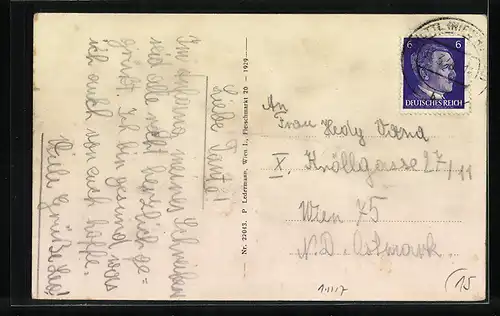 Liebe Tante!
Im Anfang meines Schreiben
seid alle recht herzlich ge-
grüßt. Ich bin gesund was
ich auch von euch hoffe.
Viele Grüße Leo!
Nr. 22043. P. Ledermann, Wien I., Fleischmarkt 20 - 1929
6 6
DEUTSCHES REICH
An
Frau Hedy
X, Kröllgasse 27/11
Wien 75
N.D. Ostmark.
(15